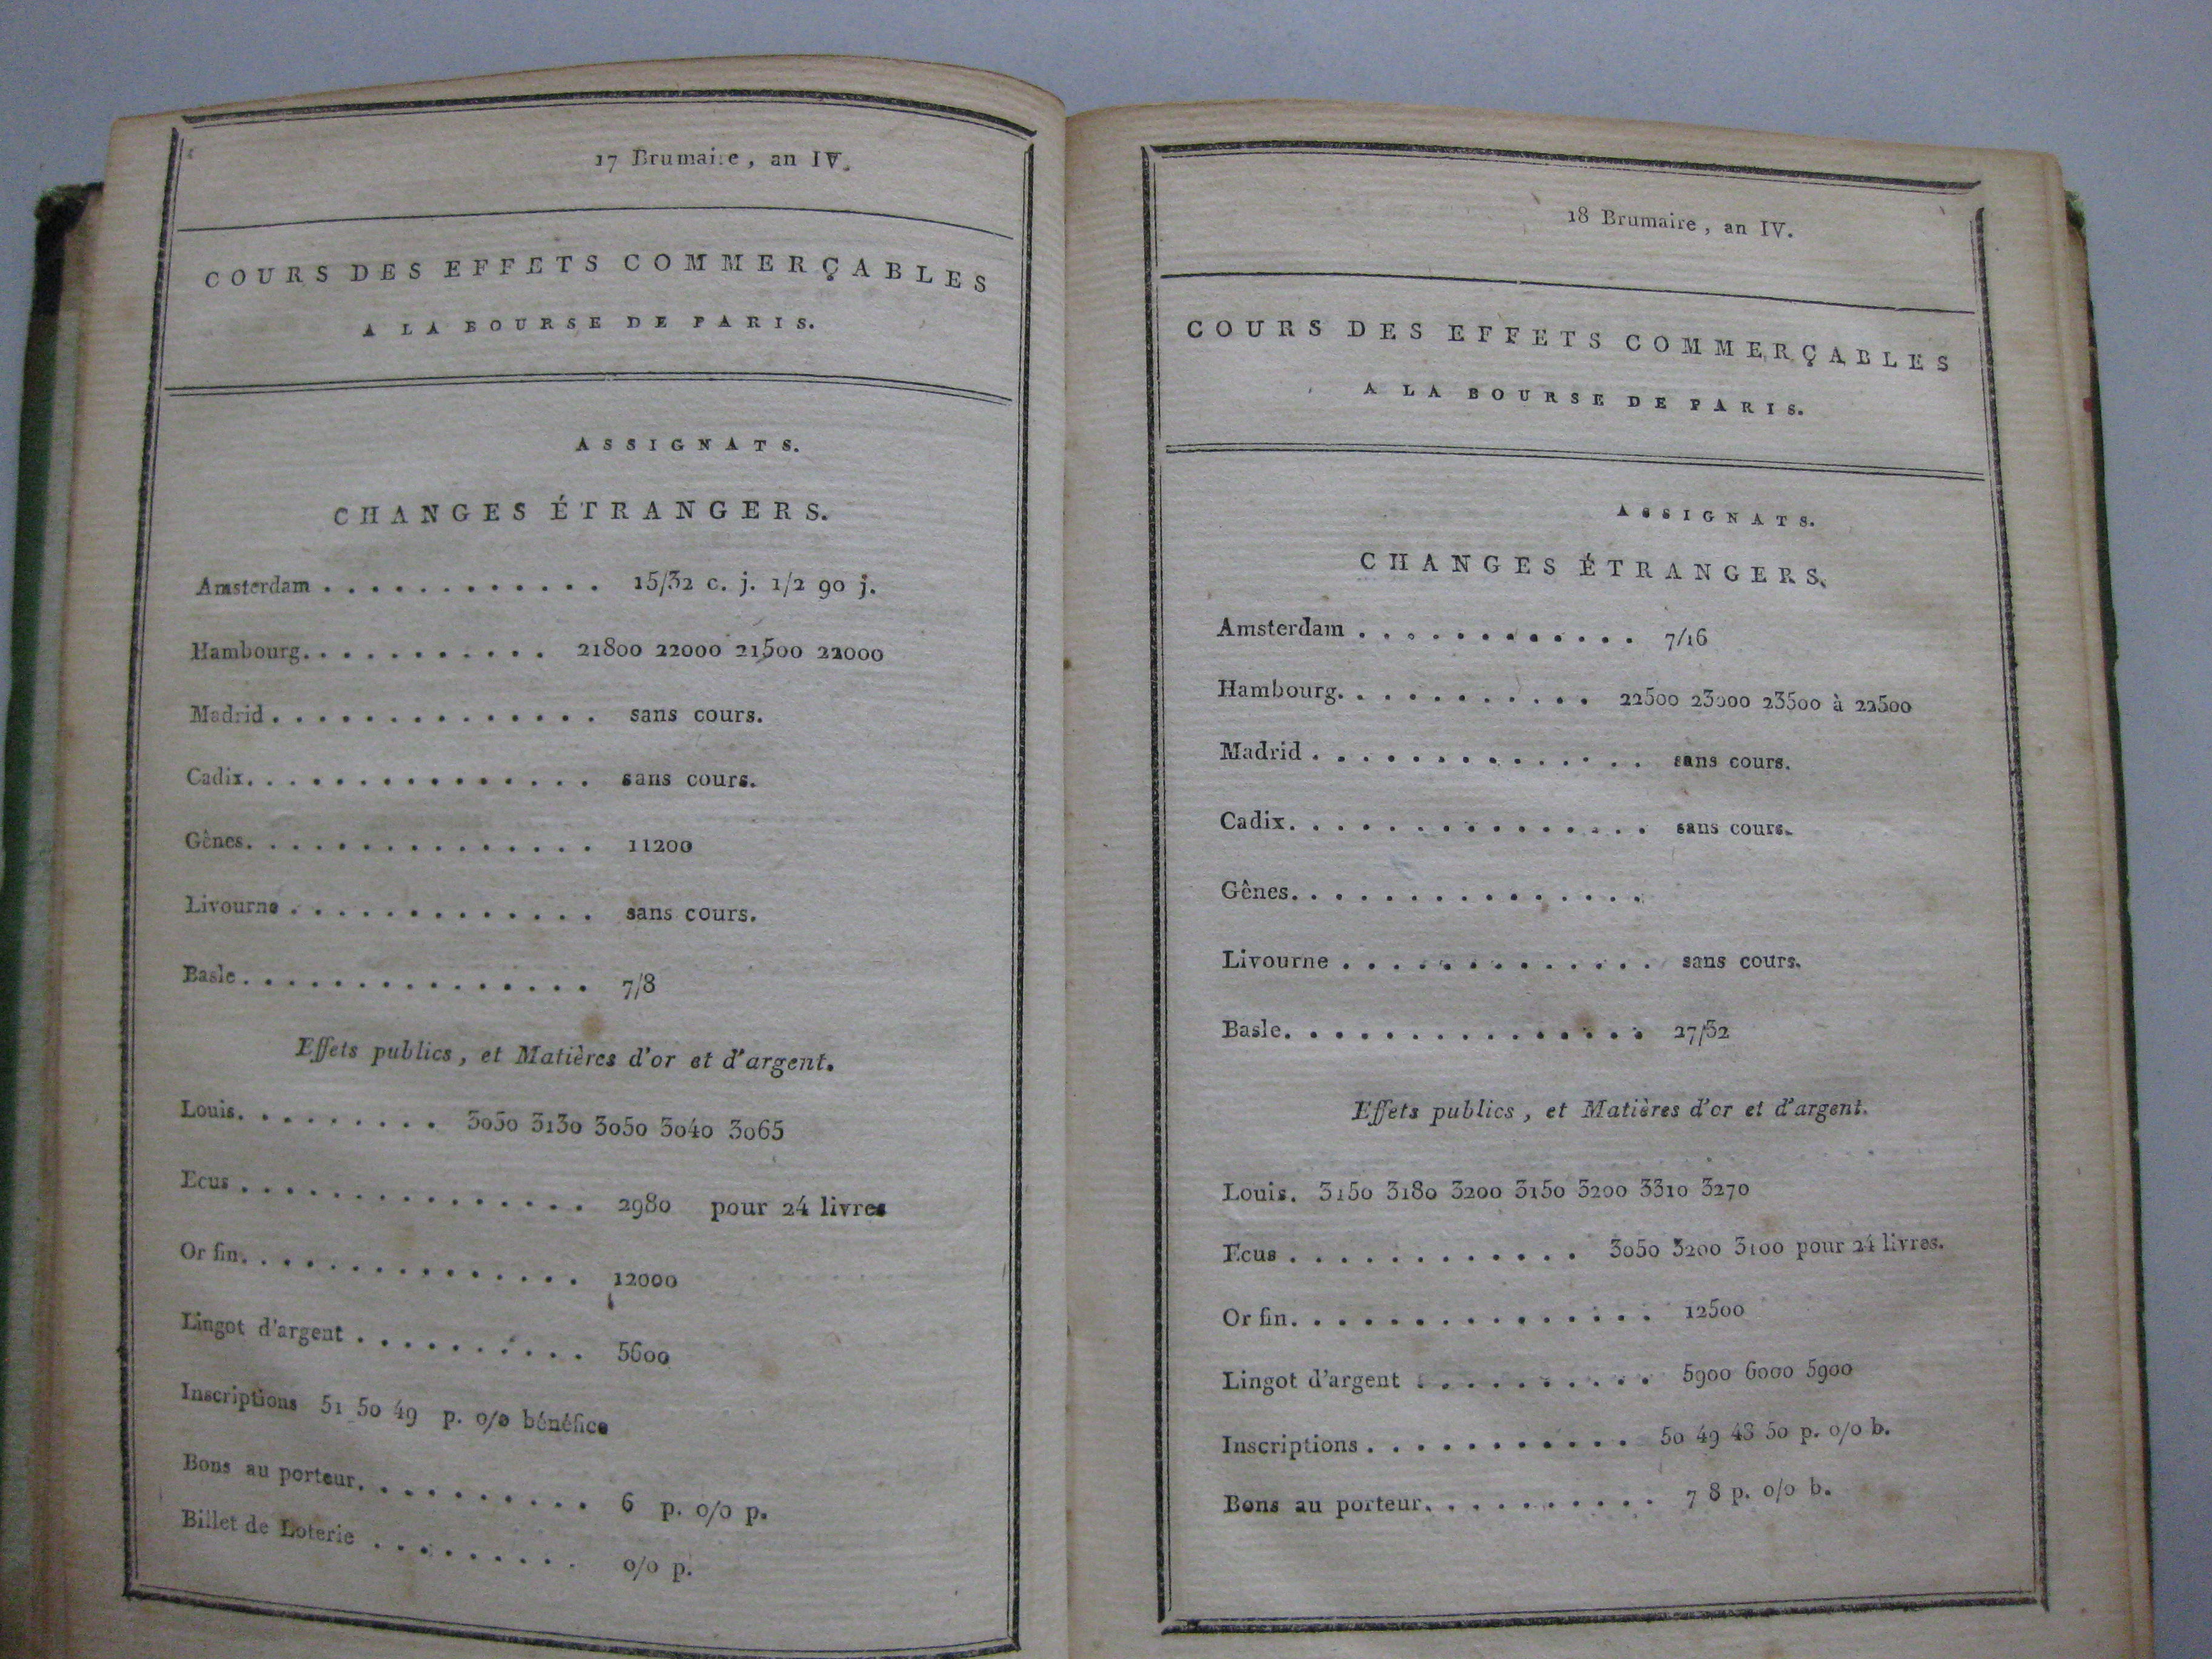 17 Brumaire, an IV.
COURS DES EFFETS COMMERÇABLES
A LA BOURSE DE PARIS.
ASSIGNATS.
CHANGES ÉTRANGERS.
Amsterdam . . . . . . . . . . . . 15/32 c. j. 1/2 90 j.
Hambourg. . . . . . . . . . . 21800 22000 21500 22000
Madrid . . . . . . . . . . . . . . sans cours.
Cadix. . . . . . . . . . . . . . . sans cours.
Gênes. . . . . . . . . . . . . . . 11200
Livourne . . . . . . . . . . . . . sans cours.
Basle . . . . . . . . . . . . . . . 7/8
Effets publics, et Matières d'or et d'argent.
Louis. . . . . . . . . 3050 3130 3050 3040 3065
Ecus . . . . . . . . . . . . . . . 2980 pour 24 livres
Or fin. . . . . . . . . . . . . . . 12000
Lingot d'argent . . . . . . . . . . 5600
Inscriptions 51 50 49 p. o/o bénéfice
Bons au porteur. . . . . . . . . . 6 p. o/o p.
Billet de Loterie . . . . . . . . . o/o p.
18 Brumaire, an IV.
COURS DES EFFETS COMMERÇABLES
A LA BOURSE DE PARIS.
ASSIGNATS.
CHANGES ÉTRANGERS.
Amsterdam . . . . . . . . . . . . 7/16
Hambourg. . . . . . . . . . . 22500 23000 23500 à 22500
Madrid . . . . . . . . . . . . . . sans cours.
Cadix. . . . . . . . . . . . . . . sans cours.
Gênes. . . . . . . . . . . . . . .
Livourne . . . . . . . . . . . . . sans cours.
Basle. . . . . . . . . . . . . . . 27/32
Effets publics, et Matières d'or et d'argent.
Louis. 3150 3180 3200 3150 3200 3310 3270
Ecus . . . . . . . . . . . . 3050 3200 3100 pour 24 livres.
Or fin. . . . . . . . . . . . . . . 12500
Lingot d'argent . . . . . . . . . . 5900 6000 5900
Inscriptions . . . . . . . . . . . 50 49 48 50 p. o/o b.
Bons au porteur. . . . . . . . . . 7 8 p. o/o b.